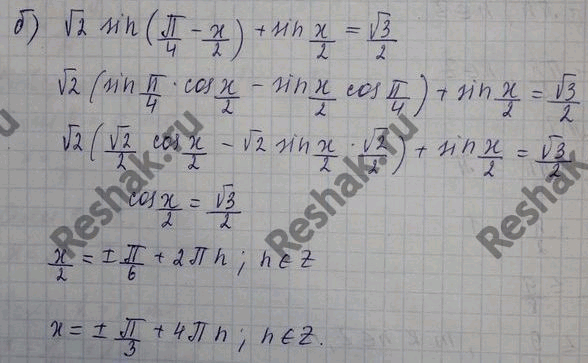 б) √2 sin(π/4 − x/2) + sin x/2 = √3/2
√2 (sin π/4 · cos x/2 − sin x/2 cos π/4) + sin x/2 = √3/2
√2 (√2/2 cos x/2 − √2 sin x/2 · √2/2) + sin x/2 = √3/2
cos x/2 = √3/2
x/2 = ± π/6 + 2πn; n∈Z
x = ± π/3 + 4πn; n∈Z.
Reshak.ru
Reshak.ru
Reshak.ru
ru